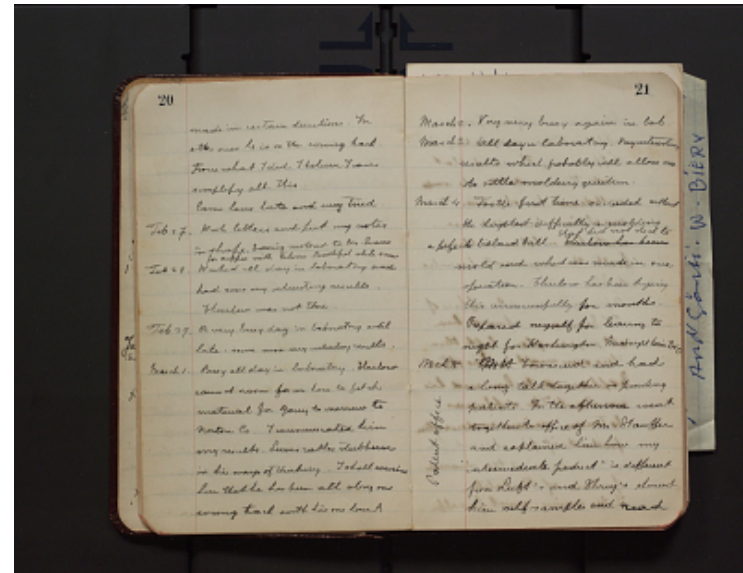 20
made in certain directions. In
this case he is on the wrong track
From what I did I believe I can
simplify all this
Came home late and very tired
Feb. 27. Wrote letters and put my notes
in shape.
Feb 28. Worked all day in laboratory and
had some very interesting results.
Thurlow was not there.
Feb. 29. A very busy day in laboratory until
late. some very interesting results.
March 1. Busy all day in laboratory. Thurlow
came at noon from here to fetch
material for going to
Norton Co. I enumerated him
my results. Seems rather stubborn
in his ways of thinking. I shall
him that he has been all along on a
wrong track with his one
21
March 2. Very very busy again in lab
March 3. All day in laboratory. Very interesting
results which probably will allow me
to settle molding question.
March 4. For the first time succeeded without
the slightest difficulty in molding
a pipe to
that did not stick to
mold and which was made in one
operation. Thurlow has been trying
this unsuccessfully for months.
Prepared myself for leaving to
night for Washington.
March 5. Townsend and had
a long talk together on pending
patents. In the afternoon went
together to office of Mr. Stauffer
and explained him how my
"intermediate product" is different
from Luft's and Story's showed
him my samples and read
Patent office
And Göttl. W. BIERY